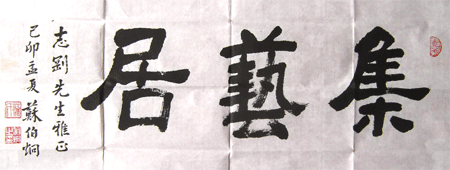 集藝居
志劉先生雅正
己卯孟夏 蘇伯炯